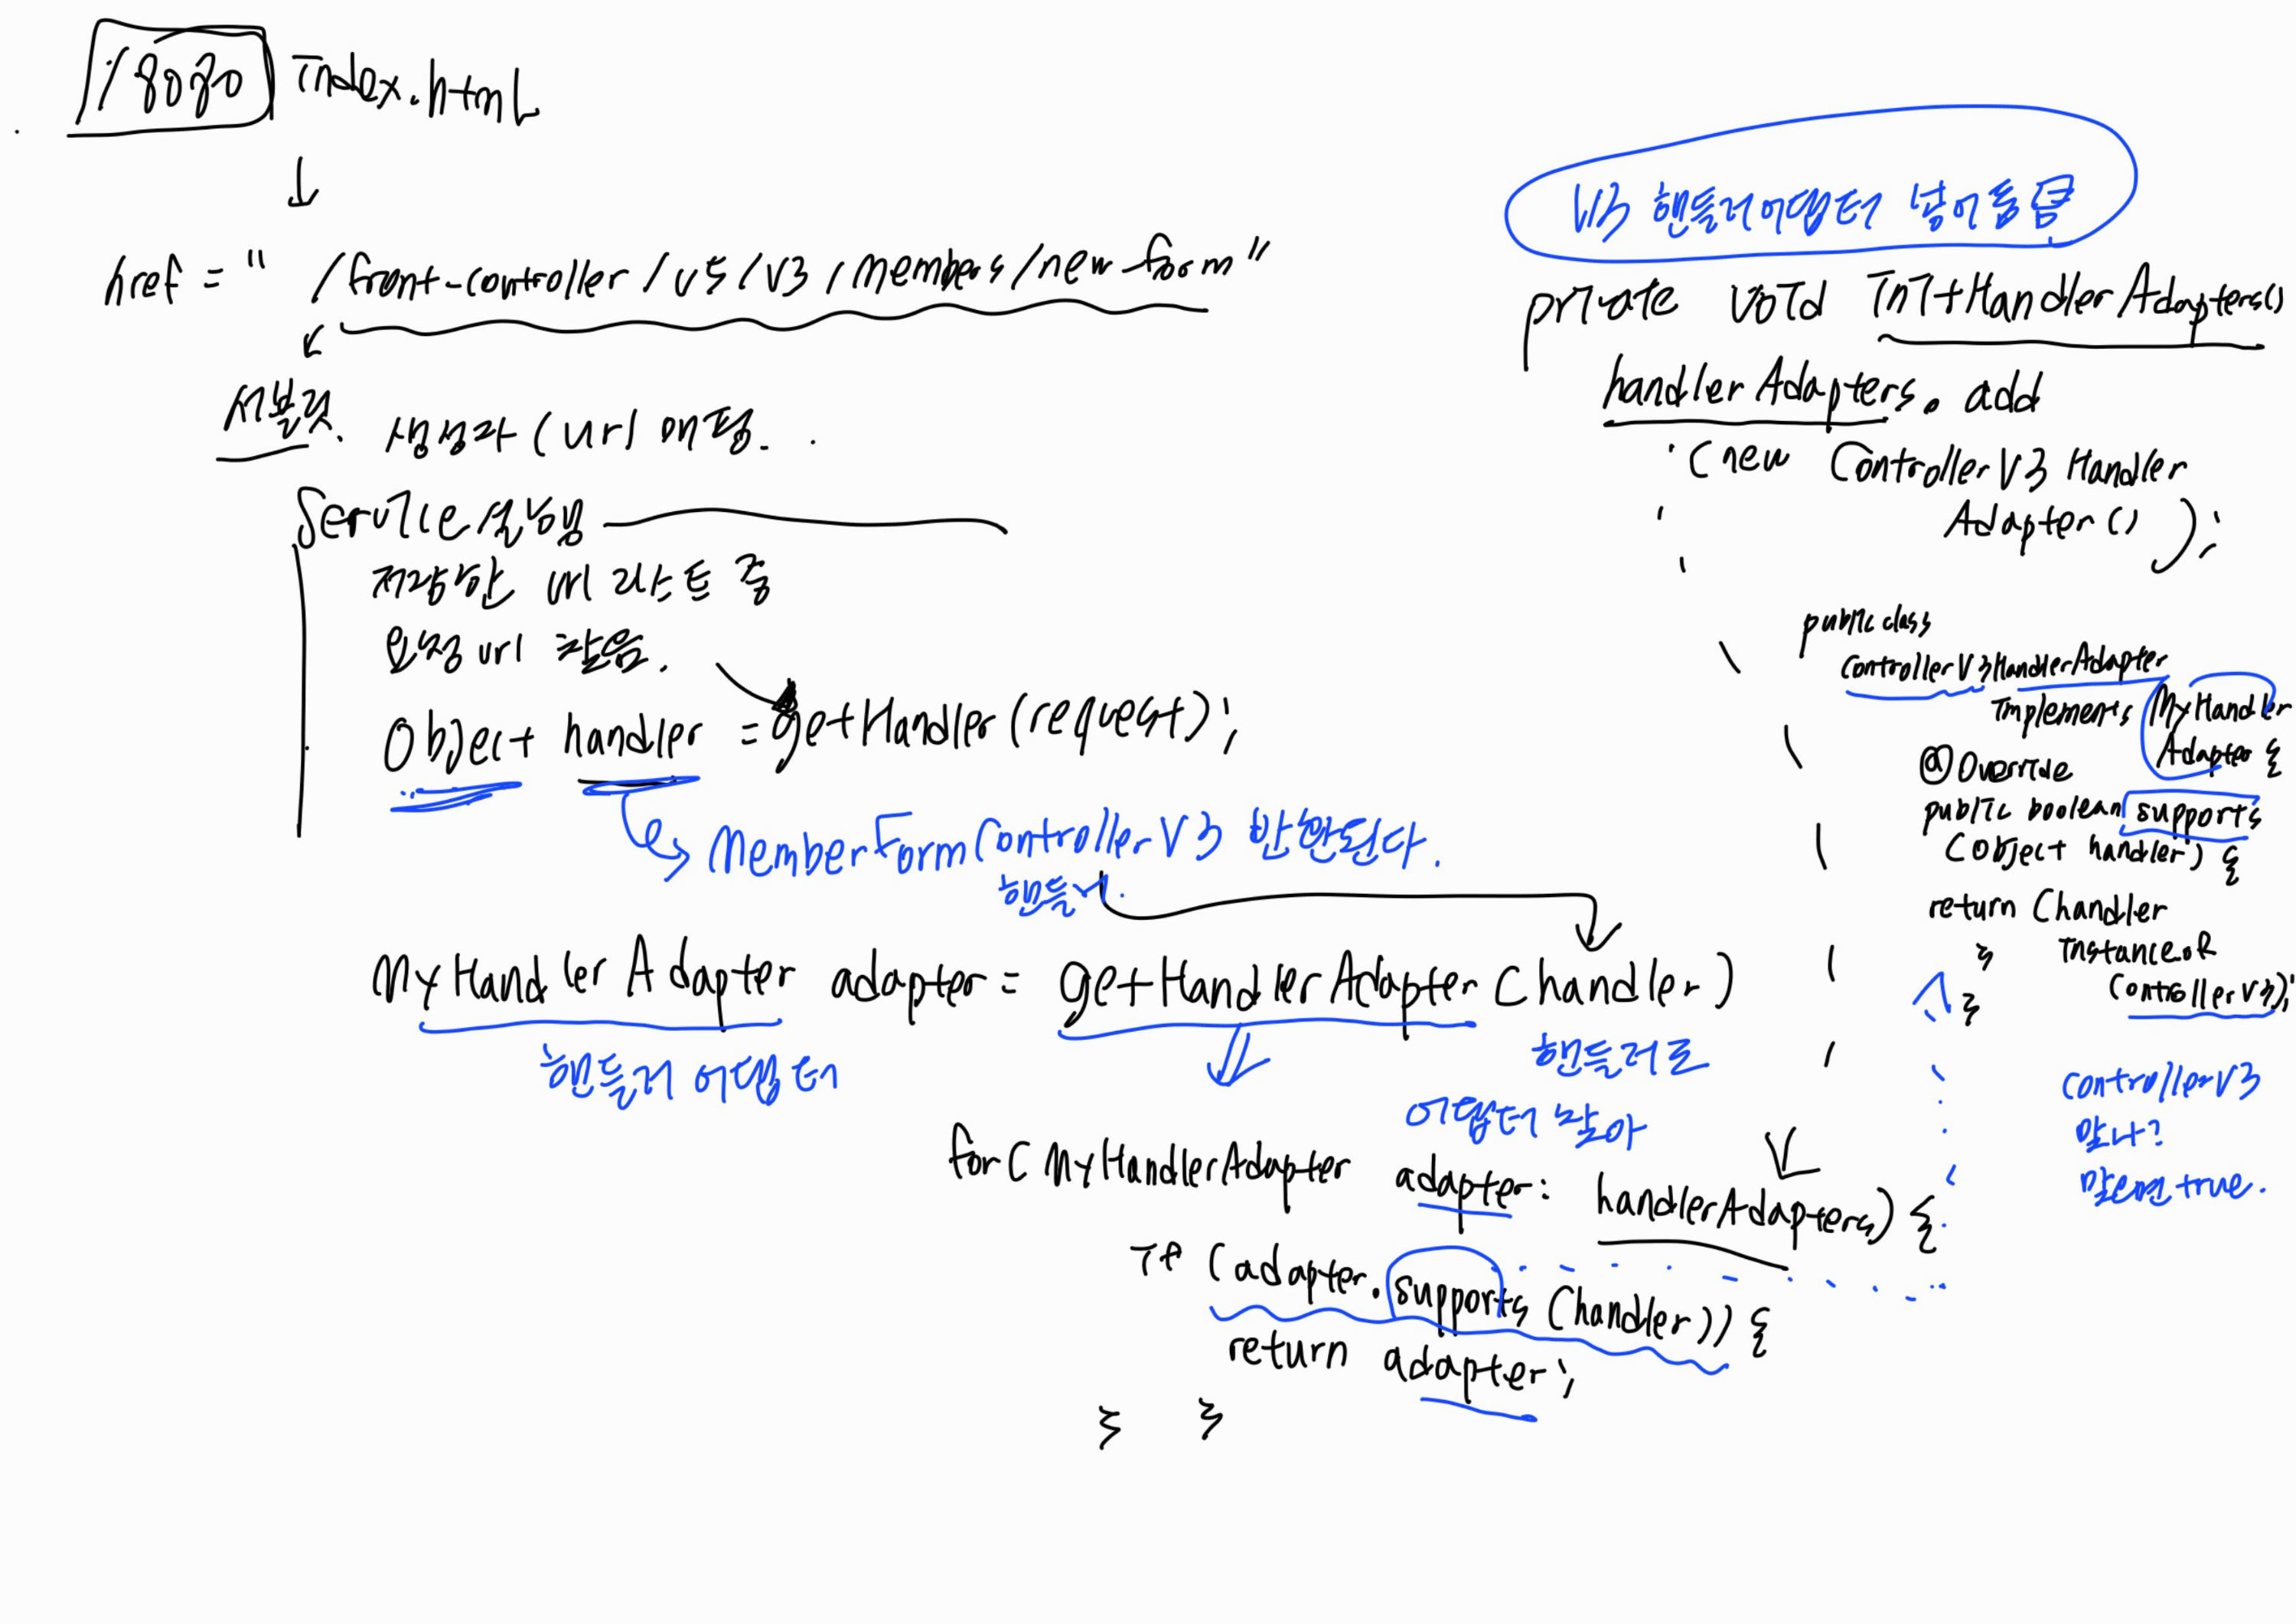 /8080 index.html
href = " /front-controller/v5/v3/members/new-form"
서블릿. 생성자 (url 매핑.
Service 실행됨
저장한 url 리스트 중
요청 url 찾음.
Object handler = getHandler(request);
MemberFormControllerV3 반환된다.
핸들러.
MyHandlerAdapter adapter = getHandlerAdapter(handler)
핸들러 어댑터
핸들러로
어댑터 찾아
for( MyHandlerAdapter adapter : handlerAdapters) {
if (adapter.supports (handler)) {
return adapter;
} }
V3 핸들러어댑터 넣어둠
private void initHandlerAdapters()
handlerAdapters. add
(new ControllerV3 Handler
Adapter() );
public class
ControllerV3HandlerAdapter
implements MyHandler
Adapter {
@Override
public boolean supports
(Object handler) {
return (handler
} instanceof
ControllerV3);
}
controllerV3
맞나?
맞으면 true.